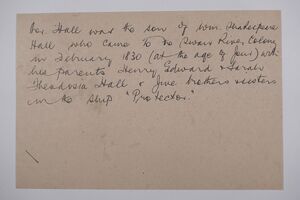 Hall was the son of Wm. Shakespeare
Hall who came to the Swan River Colony
in February 1830 (at the age of four) with
his parents Henry Edward & Sarah
Theodosia Hall & five brothers & sisters
in the ship "Protector."